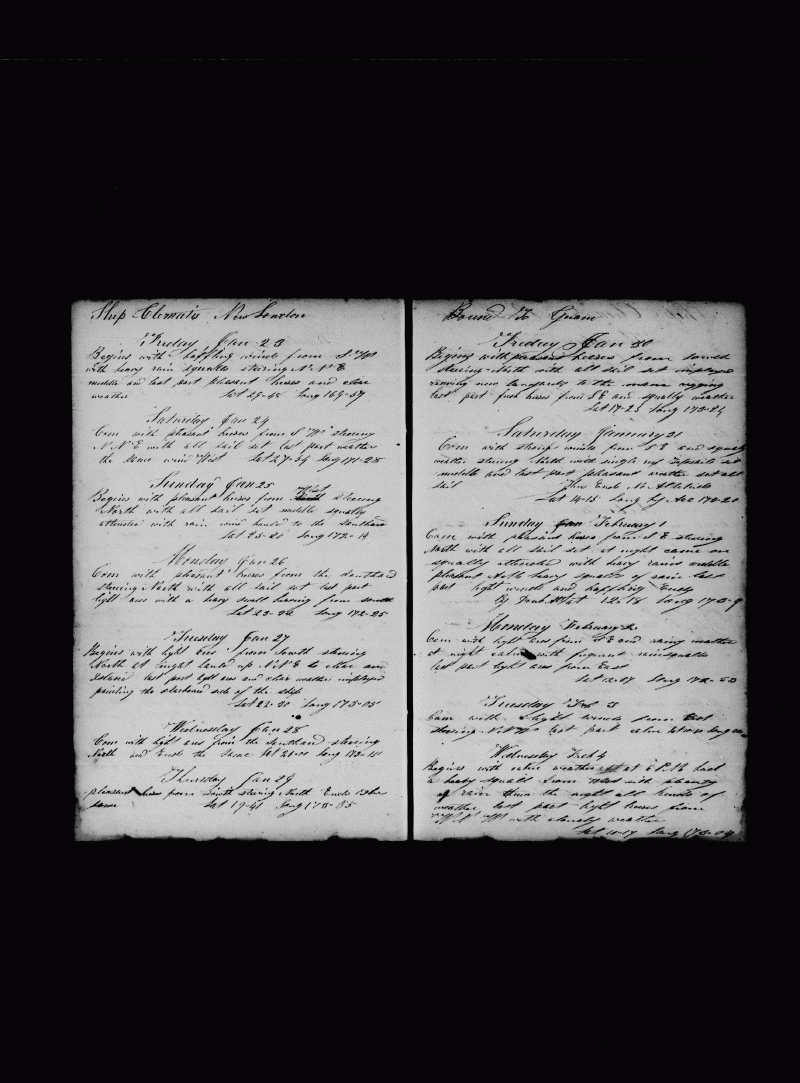 Ship Clematis New London
Friday Jan 23
Begins with baffling winds from S W
with heavy rain squalls steering N N E
middle and last part pleasant breses and clear
weather Lat 29-45 Long 169-57
Saturday Jan 24
Com with pleasant breses from S W steering
N N E with all sail set last part weather
the same wind West Lat 27-39 Long 171-28
Sunday Jan 25
Begins with pleasant breses from West steering
North with all sail set middle squaly
attended with rain wind hauld to the southard
Lat 25-20 Long 172-14
Monday Jan 26
Com with pleasant breses from the southard
steering North with all sail set last part
light aires with a heavy swell heaving from south
Lat 23-36 Long 172-25
Tuesday Jan 27
Begins with light Eres from South steering
North at night hauld up N N E to clear an
Island last part light airs and clear weather imployed
painting the starboard side of the ship
Lat 22-30 Long 173-05
Wednesday Jan 28
Com with light airs from the southard steering
North and Ends the same Lat 21-00 Long 173-14
Thursday Jan 29
pleasant breses from South steering North Ends the
same Lat 19-41 Long 173-05
Bound To Guam
Friday Jan 30
Begins with pleasant breses from south
steering North with all sail set imployd
new lanyards to the main rigging
last part fresh breses from S E and squally weather
Lat 17-23 Long 173-24
Saturday January 31
Com with strong winds from S E and squaly
weather steering North with single reef Topsails set
middle and last part pleasant weather set all
sail Thus Ends
Lat 14-15 Long by Acc 173-20
Sunday February 1
Com with pleasant breses from S E steering
North with all sail set at night came on
squally attended with heavy rains middle
pleasant heavy squalls of rain last
part light winds and baffling Ends
Lat 12-18 Long 173-9
Monday February 2
Com with light airs from S E and rainy weather
at night calm with frequent rainsqualls
last part light airs from East
Lat 12-07 Long 172-53
Tuesday Feb 3
Com with light winds from East
steering N N W last part calm
Wednesday Feb 4
Begins with calm weather at 6 P.M. had
a heavy squall from West with plenty
of rain thru the night all kinds of
weather last part light breses from
W N W with cloudy weather
Lat 10-17 Long 173-09